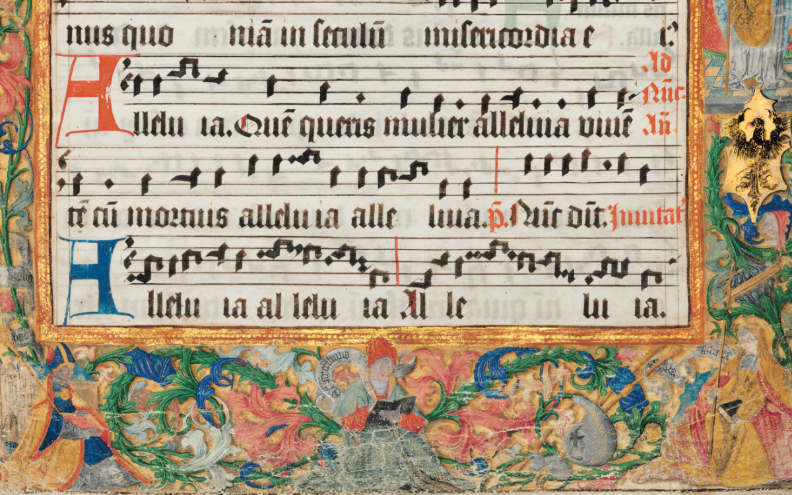 nus quo niā in seculū misericordia e i?
Ad
Nūc
Allelu ia. Quē queris mulier alleluia viuē Añ.
tē cū mortuis alleluia alle luia. p̄. Nūc dīt. Inuitat
Allelu ia al lelu ia Al le lu ia.